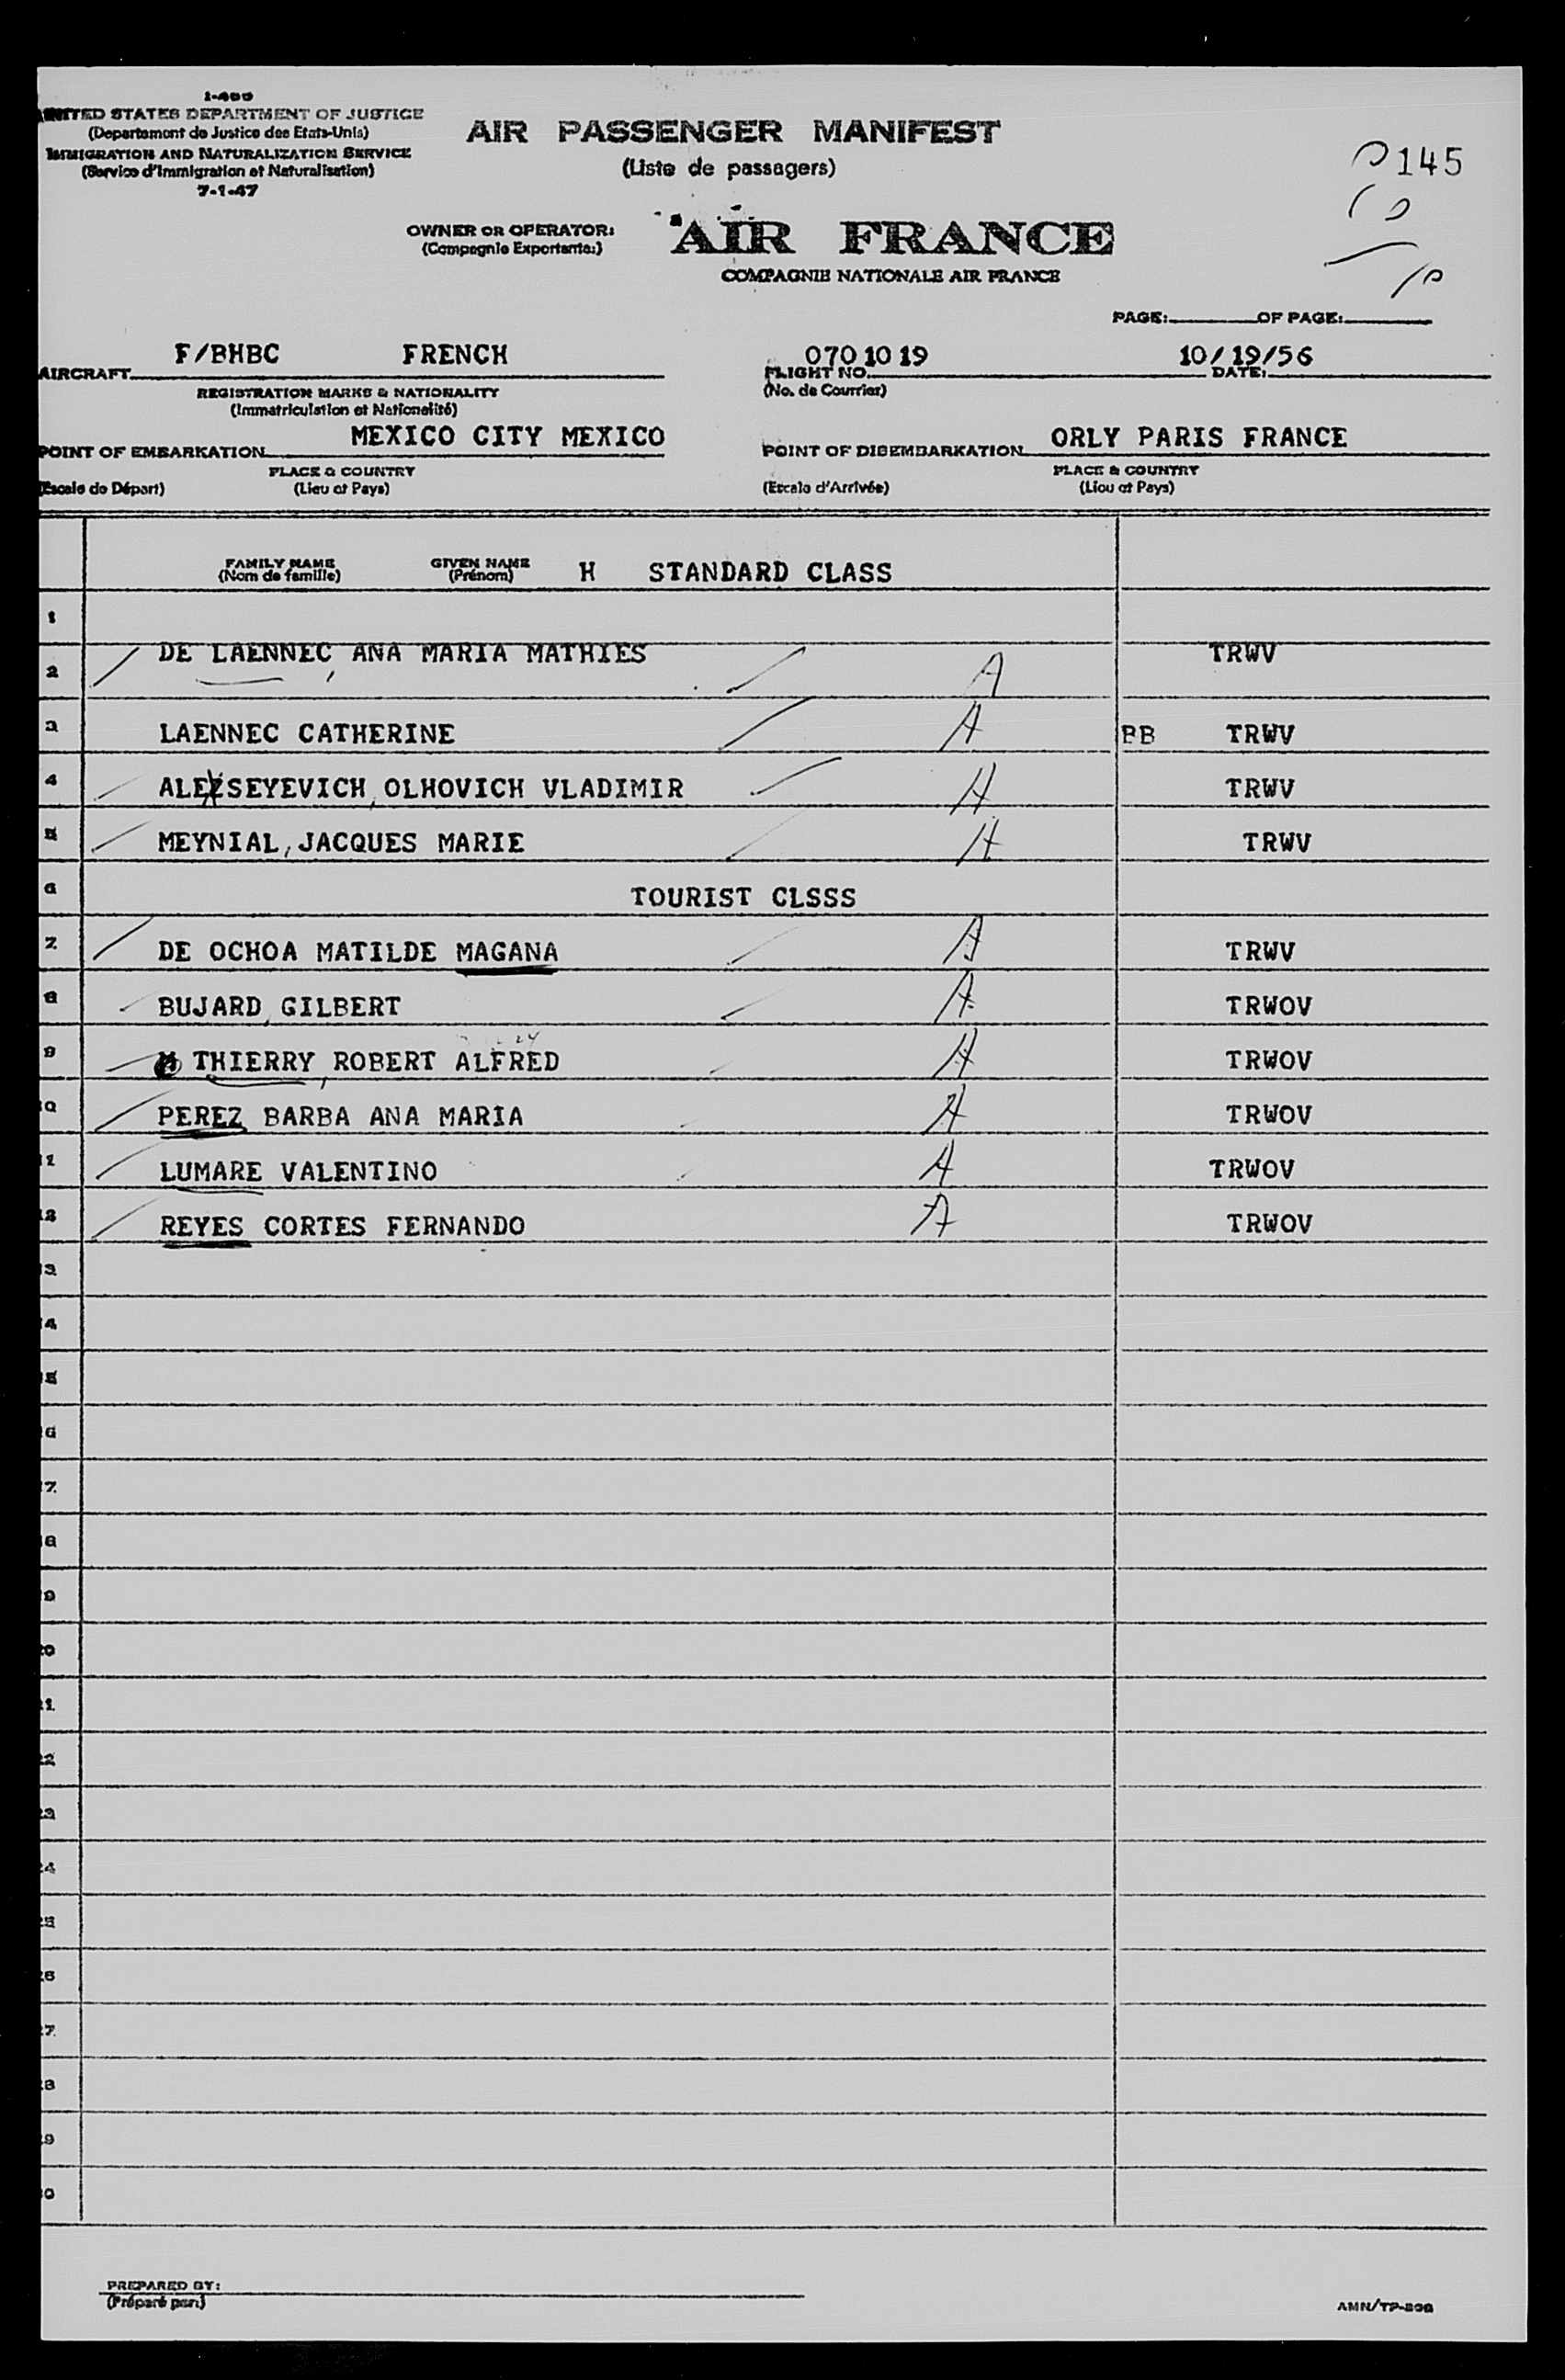 I-466
UNITED STATES DEPARTMENT OF JUSTICE
(Departement de Justice des Etats-Unis)
IMMIGRATION AND NATURALIZATION SERVICE
(Service d'Immigration et Naturalisation)
7-1-47
AIR PASSENGER MANIFEST
(Liste de passagers)
145
OWNER OR OPERATOR: AIR FRANCE
(Compagnie Exportante:)
COMPAGNIE NATIONALE AIR FRANCE
PAGE: OF PAGE:
AIRCRAFT F/BHBC FRENCH FLIGHT NO. 070 10 19 DATE: 10/19/56
REGISTRATION MARKS & NATIONALITY (No. de Courrier)
(Immatriculation et Nationalité)
POINT OF EMBARKATION MEXICO CITY MEXICO POINT OF DISEMBARKATION ORLY PARIS FRANCE
PLACE & COUNTRY PLACE & COUNTRY
(Escale de Départ) (Lieu et Pays) (Escale d'Arrivée) (Lieu et Pays)
FAMILY NAME GIVEN NAME H STANDARD CLASS
(Nom de famille) (Prénom)
1
2 DE LAENNEC, ANA MARIA MATHIES A TRWV
3 LAENNEC CATHERINE A BB TRWV
4 ALEXSEYEVICH, OLHOVICH VLADIMIR A TRWV
5 MEYNIAL, JACQUES MARIE A TRWV
6 TOURIST CLSSS
7 DE OCHOA MATILDE MAGANA A TRWV
8 BUJARD, GILBERT A TRWOV
9 THIERRY, ROBERT ALFRED A TRWOV
10 PEREZ BARBA ANA MARIA A TRWOV
11 LUMARE VALENTINO A TRWOV
12 REYES CORTES FERNANDO A TRWOV
13
14
15
16
17
18
19
20
21
22
23
24
25
26
27
28
29
30
PREPARED BY:
(Préparé par:)